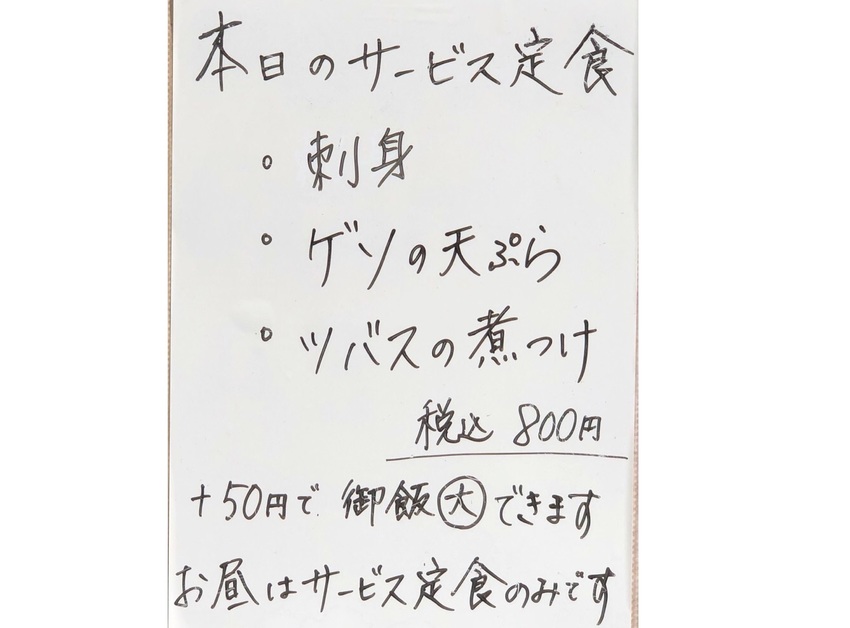 本日のサービス定食
。刺身
。ゲソの天ぷら
。ツバスの煮つけ
税込 800円
+50円で 御飯㊛できます
お昼はサービス定食のみです